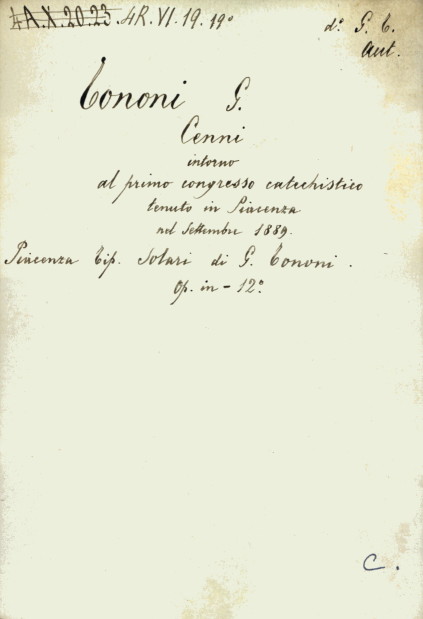 4A.X.20.23. 4R.VI.19.19º
dº. G. T.
Aut.
Tononi G.
Cenni
intorno
al primo congresso catechistico
tenuto in Piacenza
nel Settembre 1889.
Piacenza Tip. Solari di G. Tononi.
Op. in-12º
C.